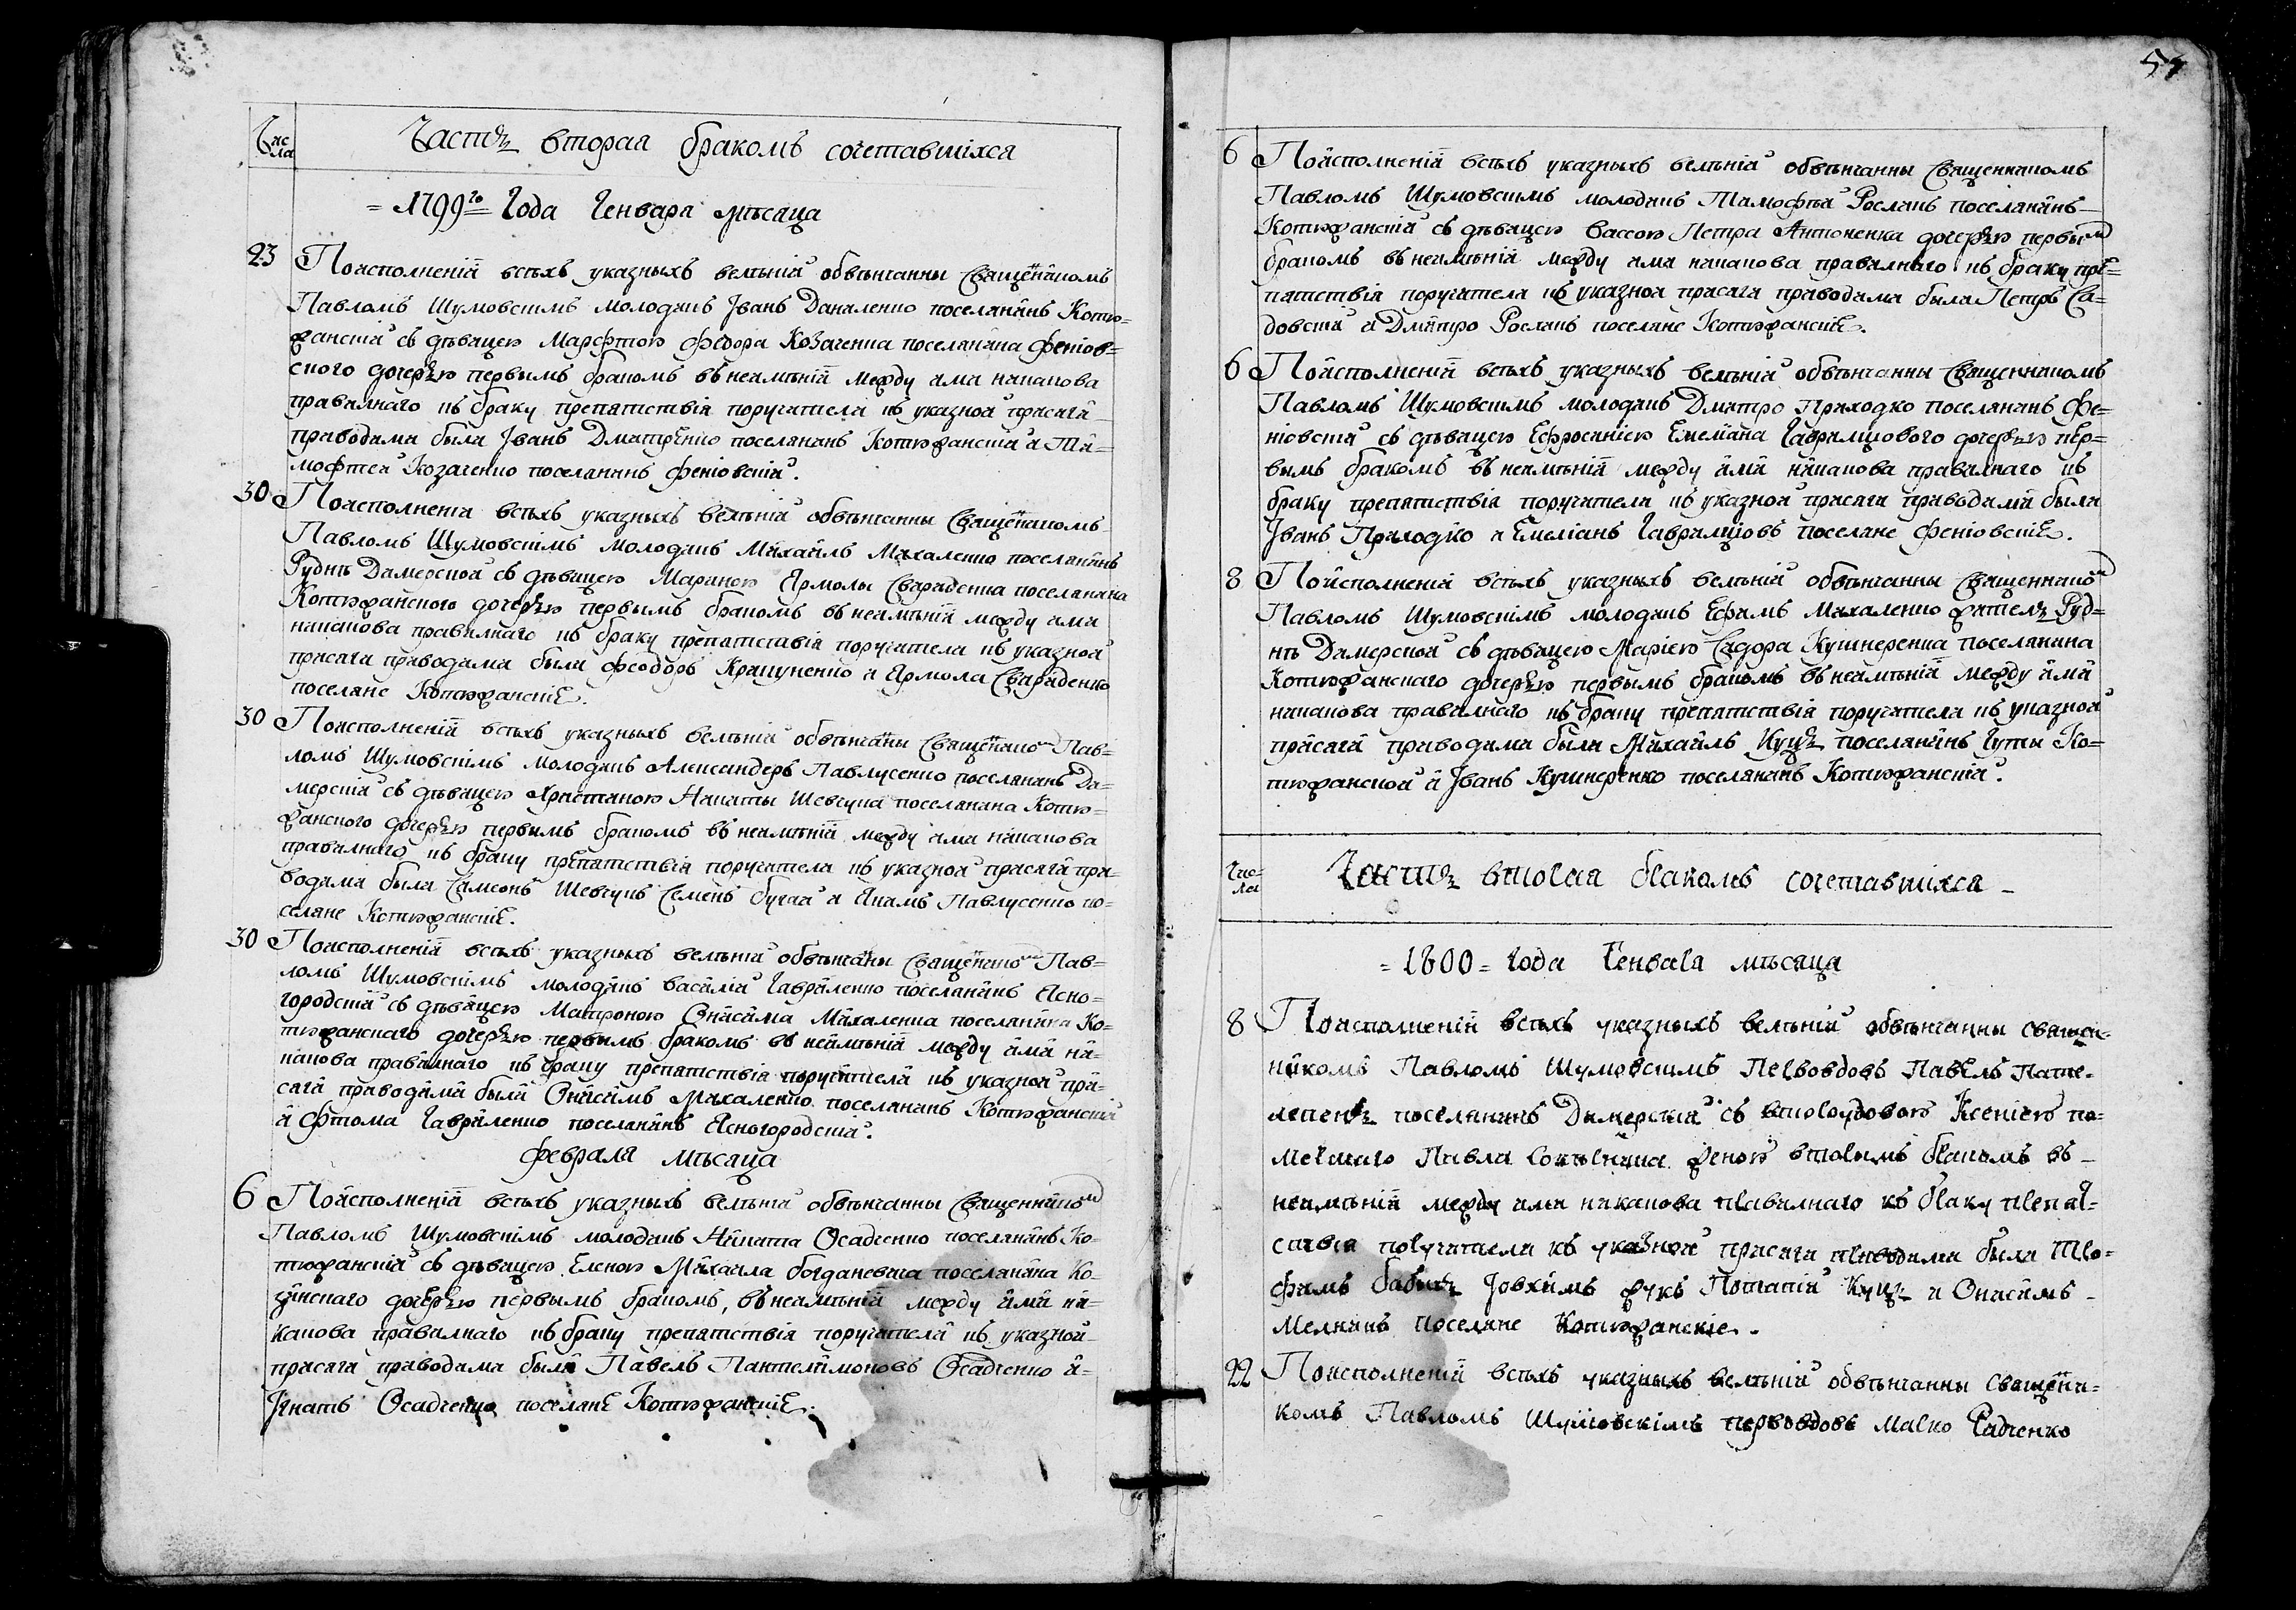 Чис
ла
Часть вторая бракомъ сочетавшихся
= 1799го Года Генвара мѣсаца
23 Поисполненій всѣхъ указныхъ велѣній обвѣнчанны Сващенникомъ
Павломъ Шумовскимъ молодикъ Іванъ Даниленко поселянинъ Котю-
жанскій съ дѣвицею Марфтою Федора Козаченка поселянина Феніов=
ского дочерью первымъ бракомъ въ неимѣній между ими никакова
правилнаго къ браку препятствія поручатели къ указной присягѣ
приводими были Іванъ Дмитренко поселянинъ Котюжанскій и Ти=
мофтей Козаченко поселянинъ Феніовскій.
30 Поисполнении всѣхъ указныхъ велѣній обвѣнчанны Сващенникомъ
Павломъ Шумовскімъ молодикъ Михаилъ Михаленко поселянинъ
Руднѣ Димерской съ дѣвицею Мариною Ярмолы Свириденка поселянина
Котюжанского дочерью первымъ бракомъ въ неимѣній между ими
никакова правилнаго къ браку препятствія поручатели къ указной
присяги приводими были Феодоръ Крапуненко и Ярмола Свириденко
поселяне Котюжанскіе.
30 Поисполненій всѣхъ указныхъ велѣній обвѣнчанны Сващенникомъ Пав=
ломъ Шумовскімъ молодикъ Александеръ Павлусенко поселянинъ Ди=
мерскій съ дѣвицею Христиною Никиты Шевчука поселянина Котю=
жанского дочерью первымъ бракомъ въ неимѣній между ими никакова
правилнаго къ браку препятствія поручатели къ указной присягѣ при=
водими были Самсонъ Шевчукъ Семенъ Бугай и Якимъ Павлусенко по=
селяне Котюжанскіе.
30 Поисполненій всѣхъ указныхъ велѣній обвѣнчаны Сващенникомъ Пав=
ломъ Шумовскімъ молодикъ Василій Гавриленко поселянинъ Ясно=
городскій съ дѣвицею Матроною Онисима Михаленка поселянина Ко=
тюжанскаго дочерью первымъ бракомъ въ неимѣній между ими ни=
какова правилнаго къ браку препятствія поручатели къ указной при=
сяги приводими были Онисимъ Михаленко поселянинъ Котюжанскій
и Фтома Гавриленко поселянинъ Ясногородскій.
Февраля мѣсяца
6 Поисполненій всѣхъ указныхъ велѣній обвѣнчанны Сващенникомъ
Павломъ Шумовскімъ молодикъ Никита Осадченко поселянинъ Ко=
тюжанскій съ дѣвицею Еленою Михаила Богданевича поселянина Ко=
зинскаго дочерью первымъ бракомъ, въ неимѣній между ими ни=
какова правилнаго къ браку препятствія поручатели къ указной
присяги приводими были Павелъ Пантелимоновъ Осадченко и=
Ігнатъ Осадченко поселяне Котюжанскіе.
6 Поисполненій всѣхъ указныхъ велѣній обвѣнчанны Сващенникомъ
Павломъ Шумовскимъ молодикъ Тимофтей Рослякъ поселянинъ
Котюжанскій съ дѣвицею Вассою Петра Антоненка дочерью первымъ
бракомъ въ неимѣній между ими никакова правилнаго къ браку пре=
пятствія поручатели къ указной присяги приводими были Петръ Са=
довскій и Дмитро Рослякъ поселяне Котюжанскіе.
6 Поисполненій всѣхъ указныхъ велѣній обвѣнчанны Сващенникомъ
Павломъ Шумовскімъ молодикъ Дмитро Приходко поселянинъ Фе=
ніовскій съ дѣвицею Ефросиніею Емеліана Гаврилцового дочерью пер=
вымъ бракомъ въ неимѣній между ими никакова правилнаго къ
браку препятствія поручатели къ указной присяги приводими были
Іванъ Приходко и Емеліанъ Гаврилцовъ поселяне Феніовскіе.
8 Поисполненій всѣхъ указныхъ велѣній обвѣнчанны Сващенникомъ
Павломъ Шумовскімъ молодикъ Ефимъ Михаленко жителъ Руд=
нѣ Димерской съ дѣвицею Маріею Сидора Кушнеренка поселянина
Котюжанскаго дочерью первымъ бракомъ въ неимѣній между ими
никакова правилнаго къ браку препятствія поручатели къ указной
присягѣ приводими были Михаилъ Куцъ поселянинъ Гуты Ко=
тюжанской и Іванъ Кушнеренко поселянинъ Котюжанскій.
Чис=
ла
Часть вторая бракомъ сочетавшихся
= 1800 = Года Генвара мѣсаца
8 Поисполненій всѣхъ указныхъ велѣній обвѣнчанны сващен-
никомъ Павломъ Шумовскимъ Первовдовъ Павелъ Пате-
лепень поселянинъ Димерскій съ второвдовою Ксеніею по=
мершаго Павла женою вторымъ бракомъ въ
неимѣній между ими никакова правилнаго къ браку препят=
ствія поручатели къ указной присяги приводими были Тро=
фимъ Бабичъ Іовхимъ Жукъ Потапій Куцъ и Онисимъ
Мелникъ поселяне Котюжанскіе.
22 Поисполненій всѣхъ указныхъ велѣній обвѣнчанны Сващени=
комъ Павломъ Шумовскімъ первовдовъ Марко Радченко